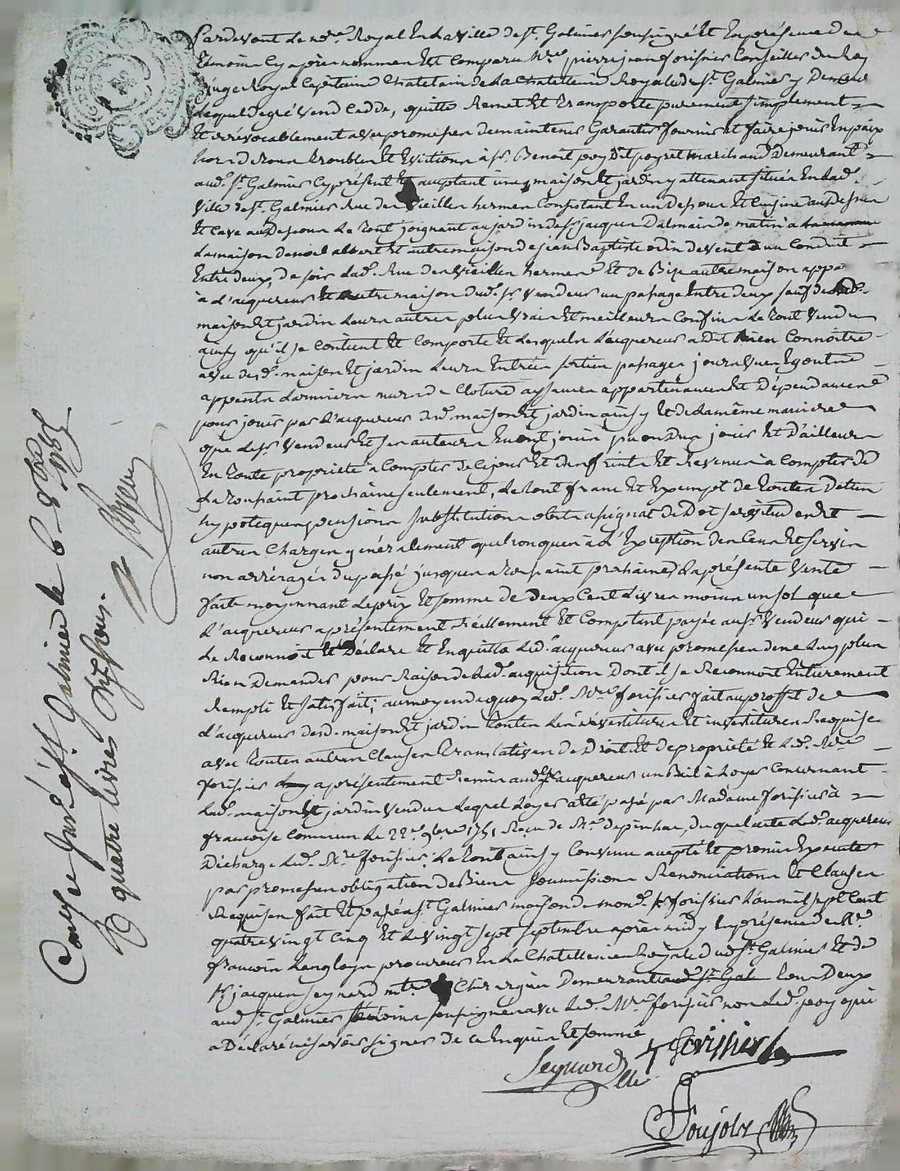 Pardevant Le no.re Royal En la ville de St. Galmier soussigné Et En présence des
témoins Cy après nommés Est Comparu Mre. pierre jean forisier Conseiller du Roy
Juge Royal Capitaine Chatelain de La Chatellenie Royale de St. Galmier y Demt.
Lequel de gré Vend Cedde, quitte Remet Et transporte purement simplement
Et irrévocablement avec promesse de maintenir Garantir fournir et faire jouir En paix
hors de tous troubles Et Evictions à sr. Benoit poy Dit peyret marchand Demeurant
aud. St. Galmier Cy présent Et acceptant une maison Et jardin y attenant située En lad.
Ville de St. Galmier Rue des Vieilles Consistant En un dessous Et Cuisine au dessus
Et Cave au dessous Le tout joignant au jardin de sr. jacques Dalmais de matin à
La maison de noel albert Et autre maison de jean Baptiste odin devent d'un Conduit
Entre deux, de soir Lad. Rue des Vieilles Et de Bize autre maison app.
à L'acquereur Et autre maison dud. sr. Vendeur un passage Entre deux sauf desd.
maison Et jardin Leurs autres plus Vrais Et meilleurs Confins Le tout Vendu
ainsy qu'il se Contient Et Comporte Et Lesquels L'acquereur a dit bien Connoitre
avec desd. maison Et jardin Leurs Entrées sorties passages jours Vues Egouts
murs de Cloture aysances appartenances Et Dépendances
pour jouir par L'acquereur desd. maison Et jardin ainsy Et de La même maniere
que Led. sr. Vendeur Et ses auteurs En ont joui pu ou du jouir Et D'ailleurs
En toute propriété à Compter de Ce jour Et des fruits et Revenus à Compter de
La toussaint prochaine seulement, Le tout franc Et Exempt de toutes Dettes
hypoteques pensions Substitutions Dot servitudes Et
autres Charges generalement quelconques à L'Exception des Cens Et servis
non arréragés du passé jusques a toussaint prochaine La présente Vente
faite moyennant Le prix Et somme de Deux Cent Livres moins un sol que
L'acquereur a présentement Réellement Et Comptant payée au sr. Vendeur qui
Le Reconnoit Et Déclare Et En quitte Led. acquereur avec promesse de ne Luy plus
Rien Demander pour Raison de Lad. acquisition Dont il se Reconnoit Entierement
Rempli Et Satisfait; au moyen de quoy Led. Mre. forisier fait au proffit de
L'acquereur desd. maison Et jardin toutes Requises
avec toutes autres Clauses translatives de Droit Et de propriété Et Led. Mre.
forisier a présentement Remis aud. sr. acquereur un Bail à Loyer Concernant
Lad. maison Et jardin Vendus Lequel Loyer a été passé par Madame forisier à
francoise Commun Le 22e. 9bre 1751 Reçu de Me. depinhac, duquel acte Led. acquereur
Décharge Led. Mre. forisier, Le tout ainsy Convenu accepté Et promis Executer
par promesses obligation de Biens soumissions Renonciations Et Clauses
Requises fait Et passé à St. Galmier maison de mond. sr. forisier L'an mil sept Cent
quatre Vingt Cinq Et Le Vingt sept septembre après midy En présence de Me.
francois Langlois procureur En La Chatellenie Royale dud. St. Galmier Et de
sr. jacques seynard mtre. Chirurgien Demeurant aud. St. Gal tous Deux
aud. St. Galmier témoins soussignés avec Led. Mre. forisier non Led. poy qui
a Déclaré ne savoir signer de ce Enquis Et sommé
Seynard
Forissier
Poujols
Conlé et Insé à St. Galmier le 6 8bre 1785
R quatre livres dix sous.